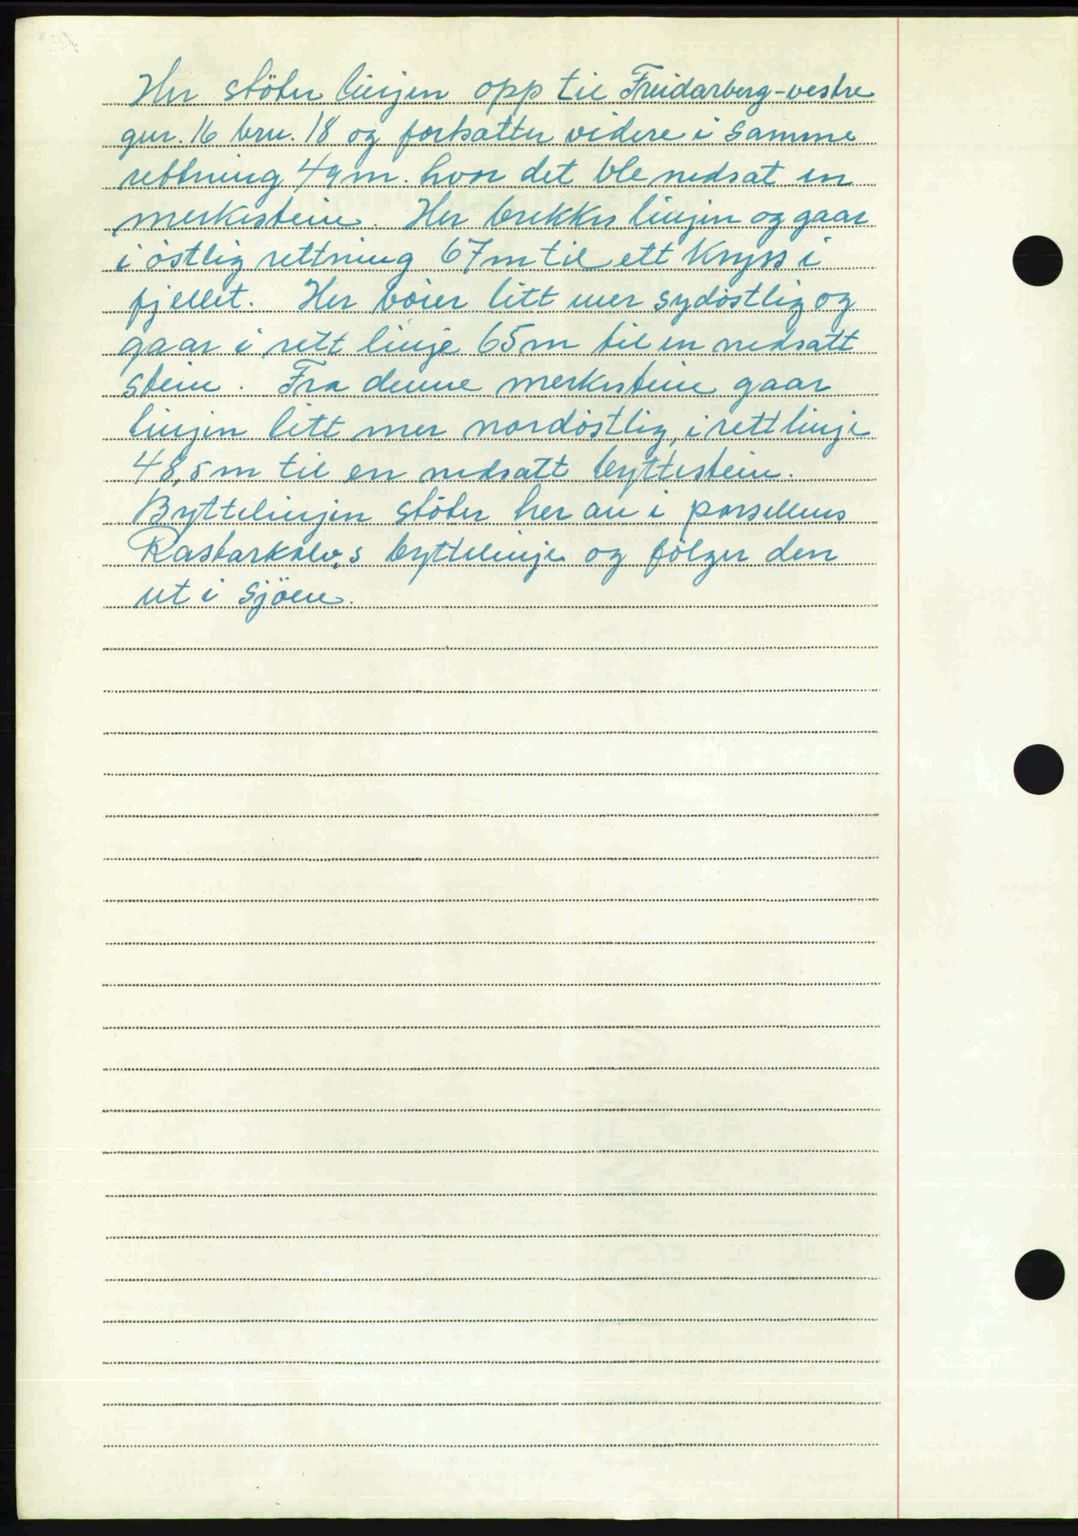 Her stöter linjen opp til Freidarberg-vestre
gnr. 16 bnr. 18 og fortsatter videre i samme
rettning 49m. hvor det ble nedsat en
merkestein. Her brekkes linjen og gaar
i östlig rettning 67m til ett kryss i
fjellet. Her böier litt mer sydöstlig og
gaar i rett linje 65m til en nedsatt
stein. Fra denne merkestein gaar
linjen litt mer nordöstlig, i rett linje
48,5m til en nedsatt byttestein.
Byttelinjen stöter her an i parsellens
Rastarkalv,s byttelinje og fölger den
ut i sjöen.